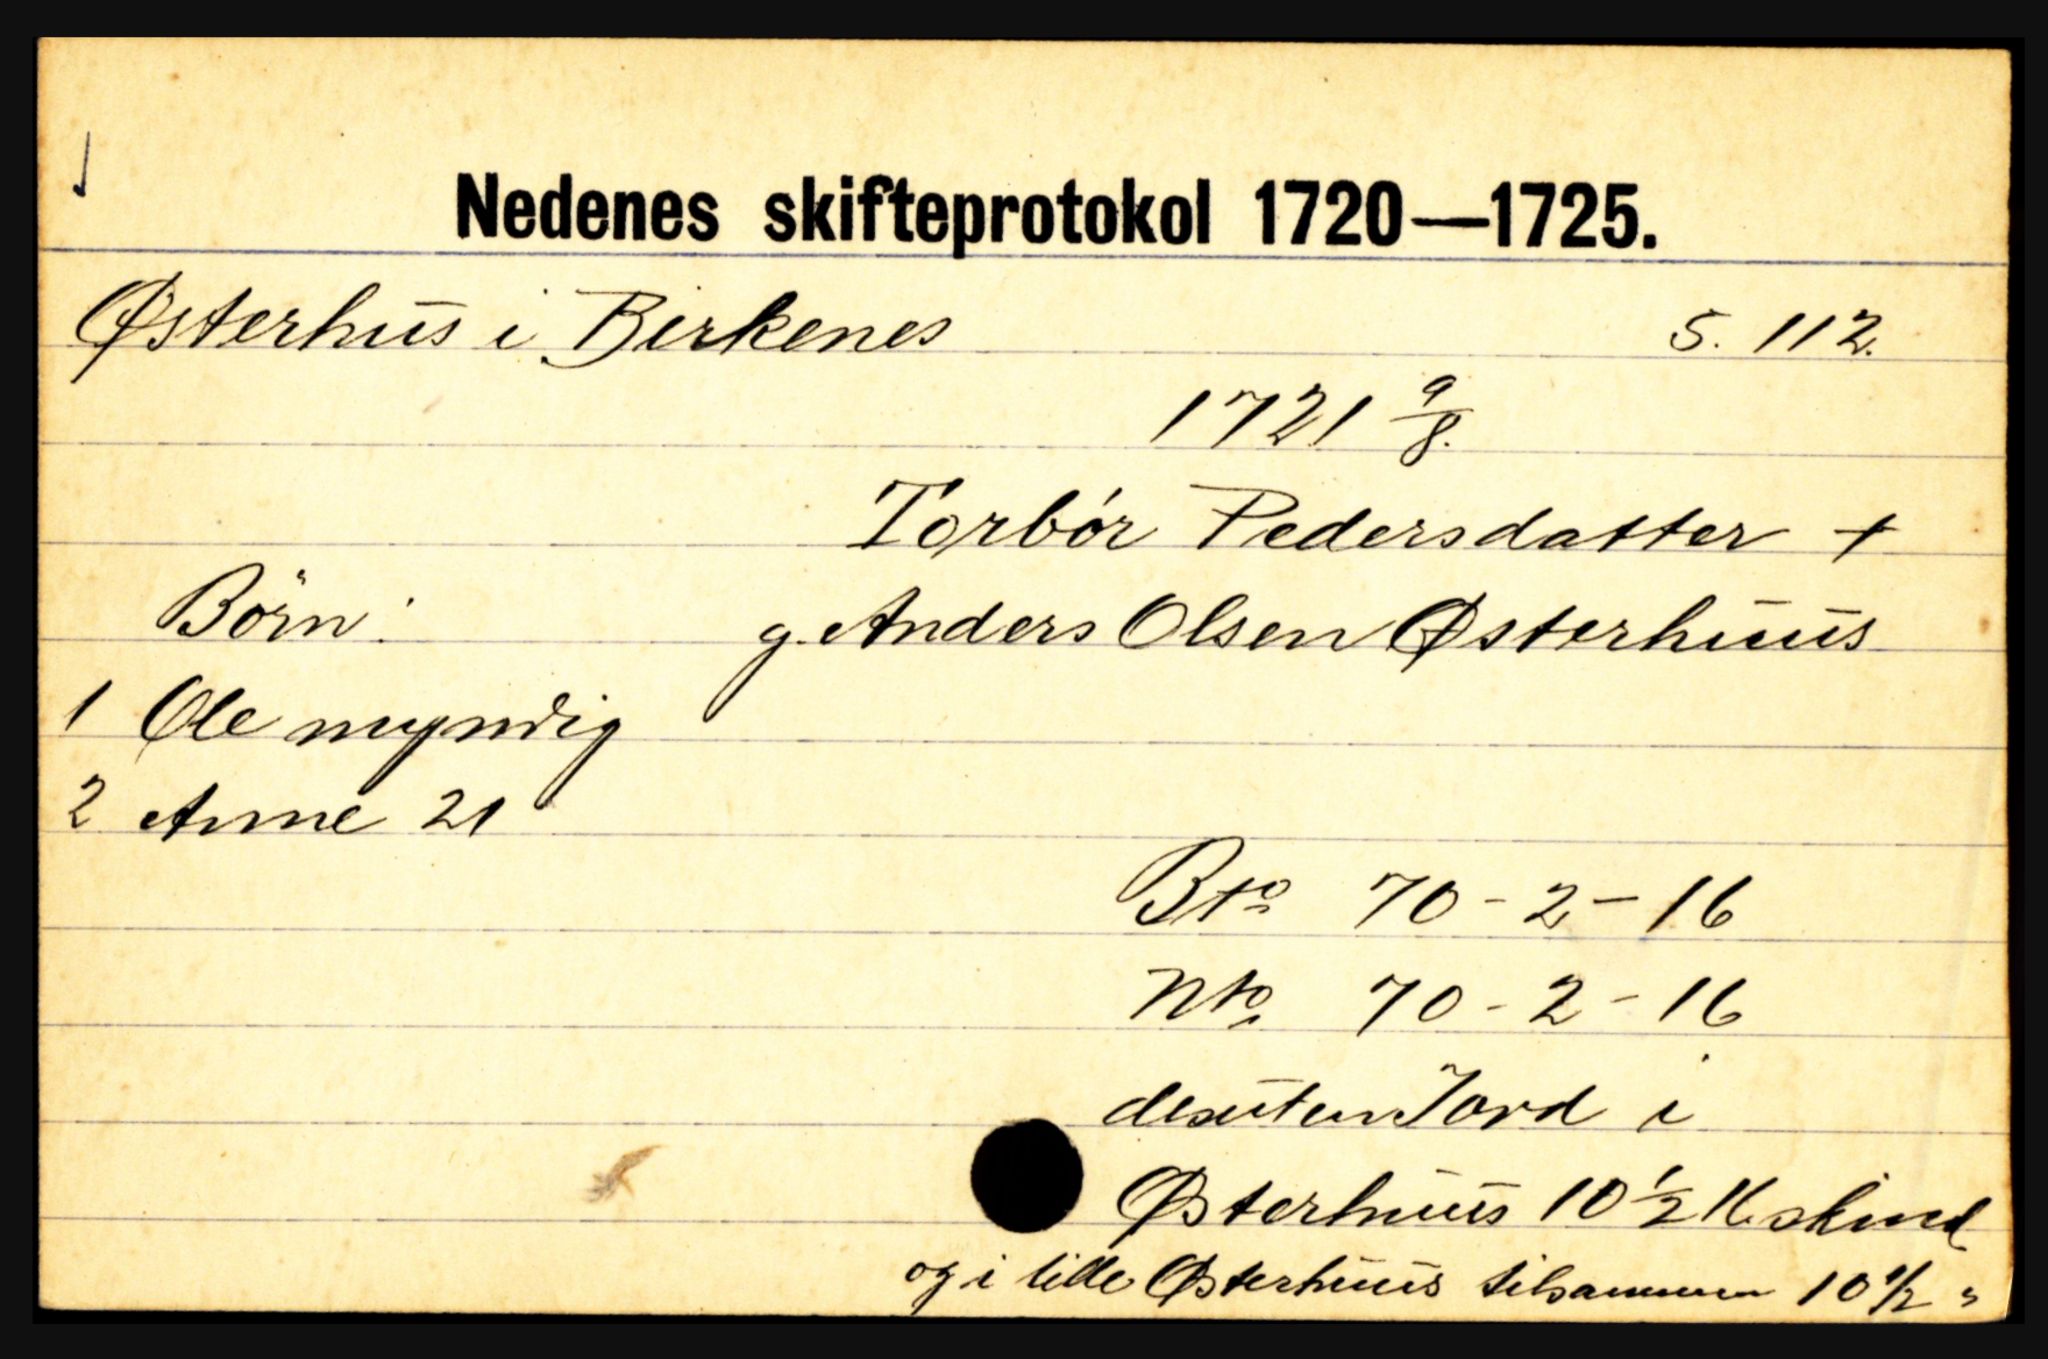 Nedenes skifteprotokol 1720—1725.
Østerhus i Birkenes S. 112.
1721 9/8.
Torbør Pedersdatter +
Børn: g. Anders Olsen Østerhuus
1 Ole myndig
2 Anne 21
Bto 70 - 2 - 16
Nto 70 - 2 - 16
desuten Jord i
Østerhuus 10 1/2 K skind
og i lille Østerhuus tilsammen 10 1/2 "